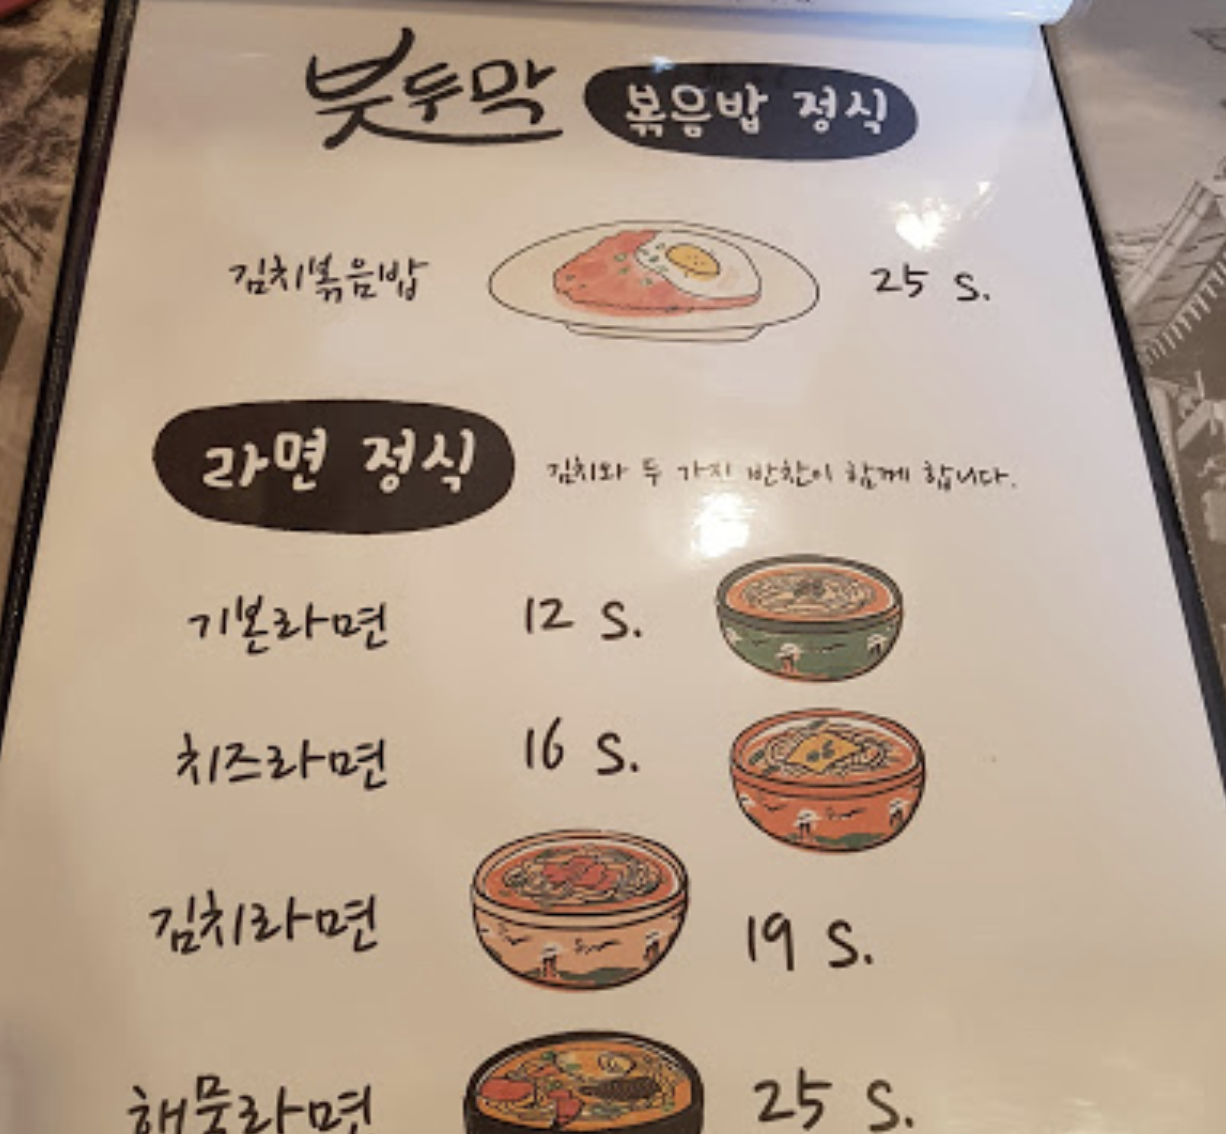 붓두막 볶음밥 정식
김치볶음밥 25 S.
라면 정식 김치와 두 가지 반찬이 함께 합니다.
기본라면 12 S.
치즈라면 16 S.
김치라면 19 S.
해물라면 25 S.